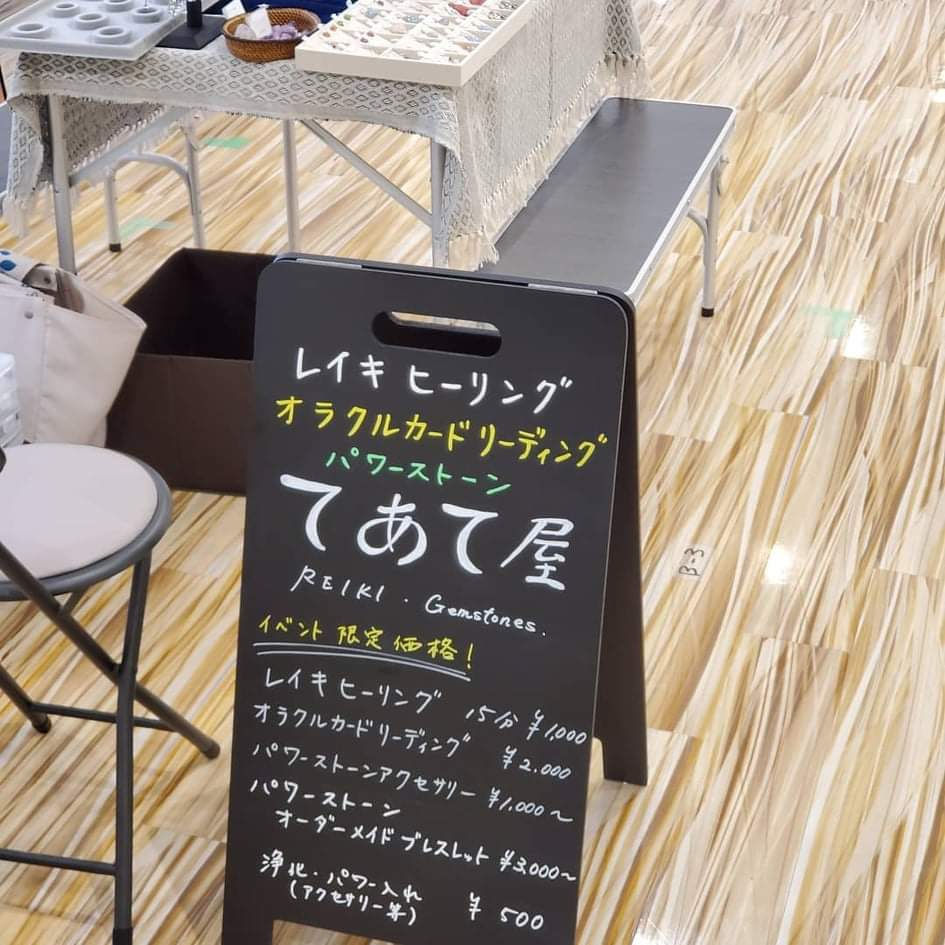 レイキ ヒーリング
オラクルカードリーディング
パワーストーン
てあて屋
REIKI . Gemstones.
イベント 限定 価格!
レイキ ヒーリング 15分 ¥1,000
オラクルカードリーディング ¥2,000
パワーストーンアクセサリー ¥1,000～
パワーストーン
オーダーメイド ブレスレット ¥3,000～
浄化・パワー入れ
(アクセサリー等) ¥ 500
B-3